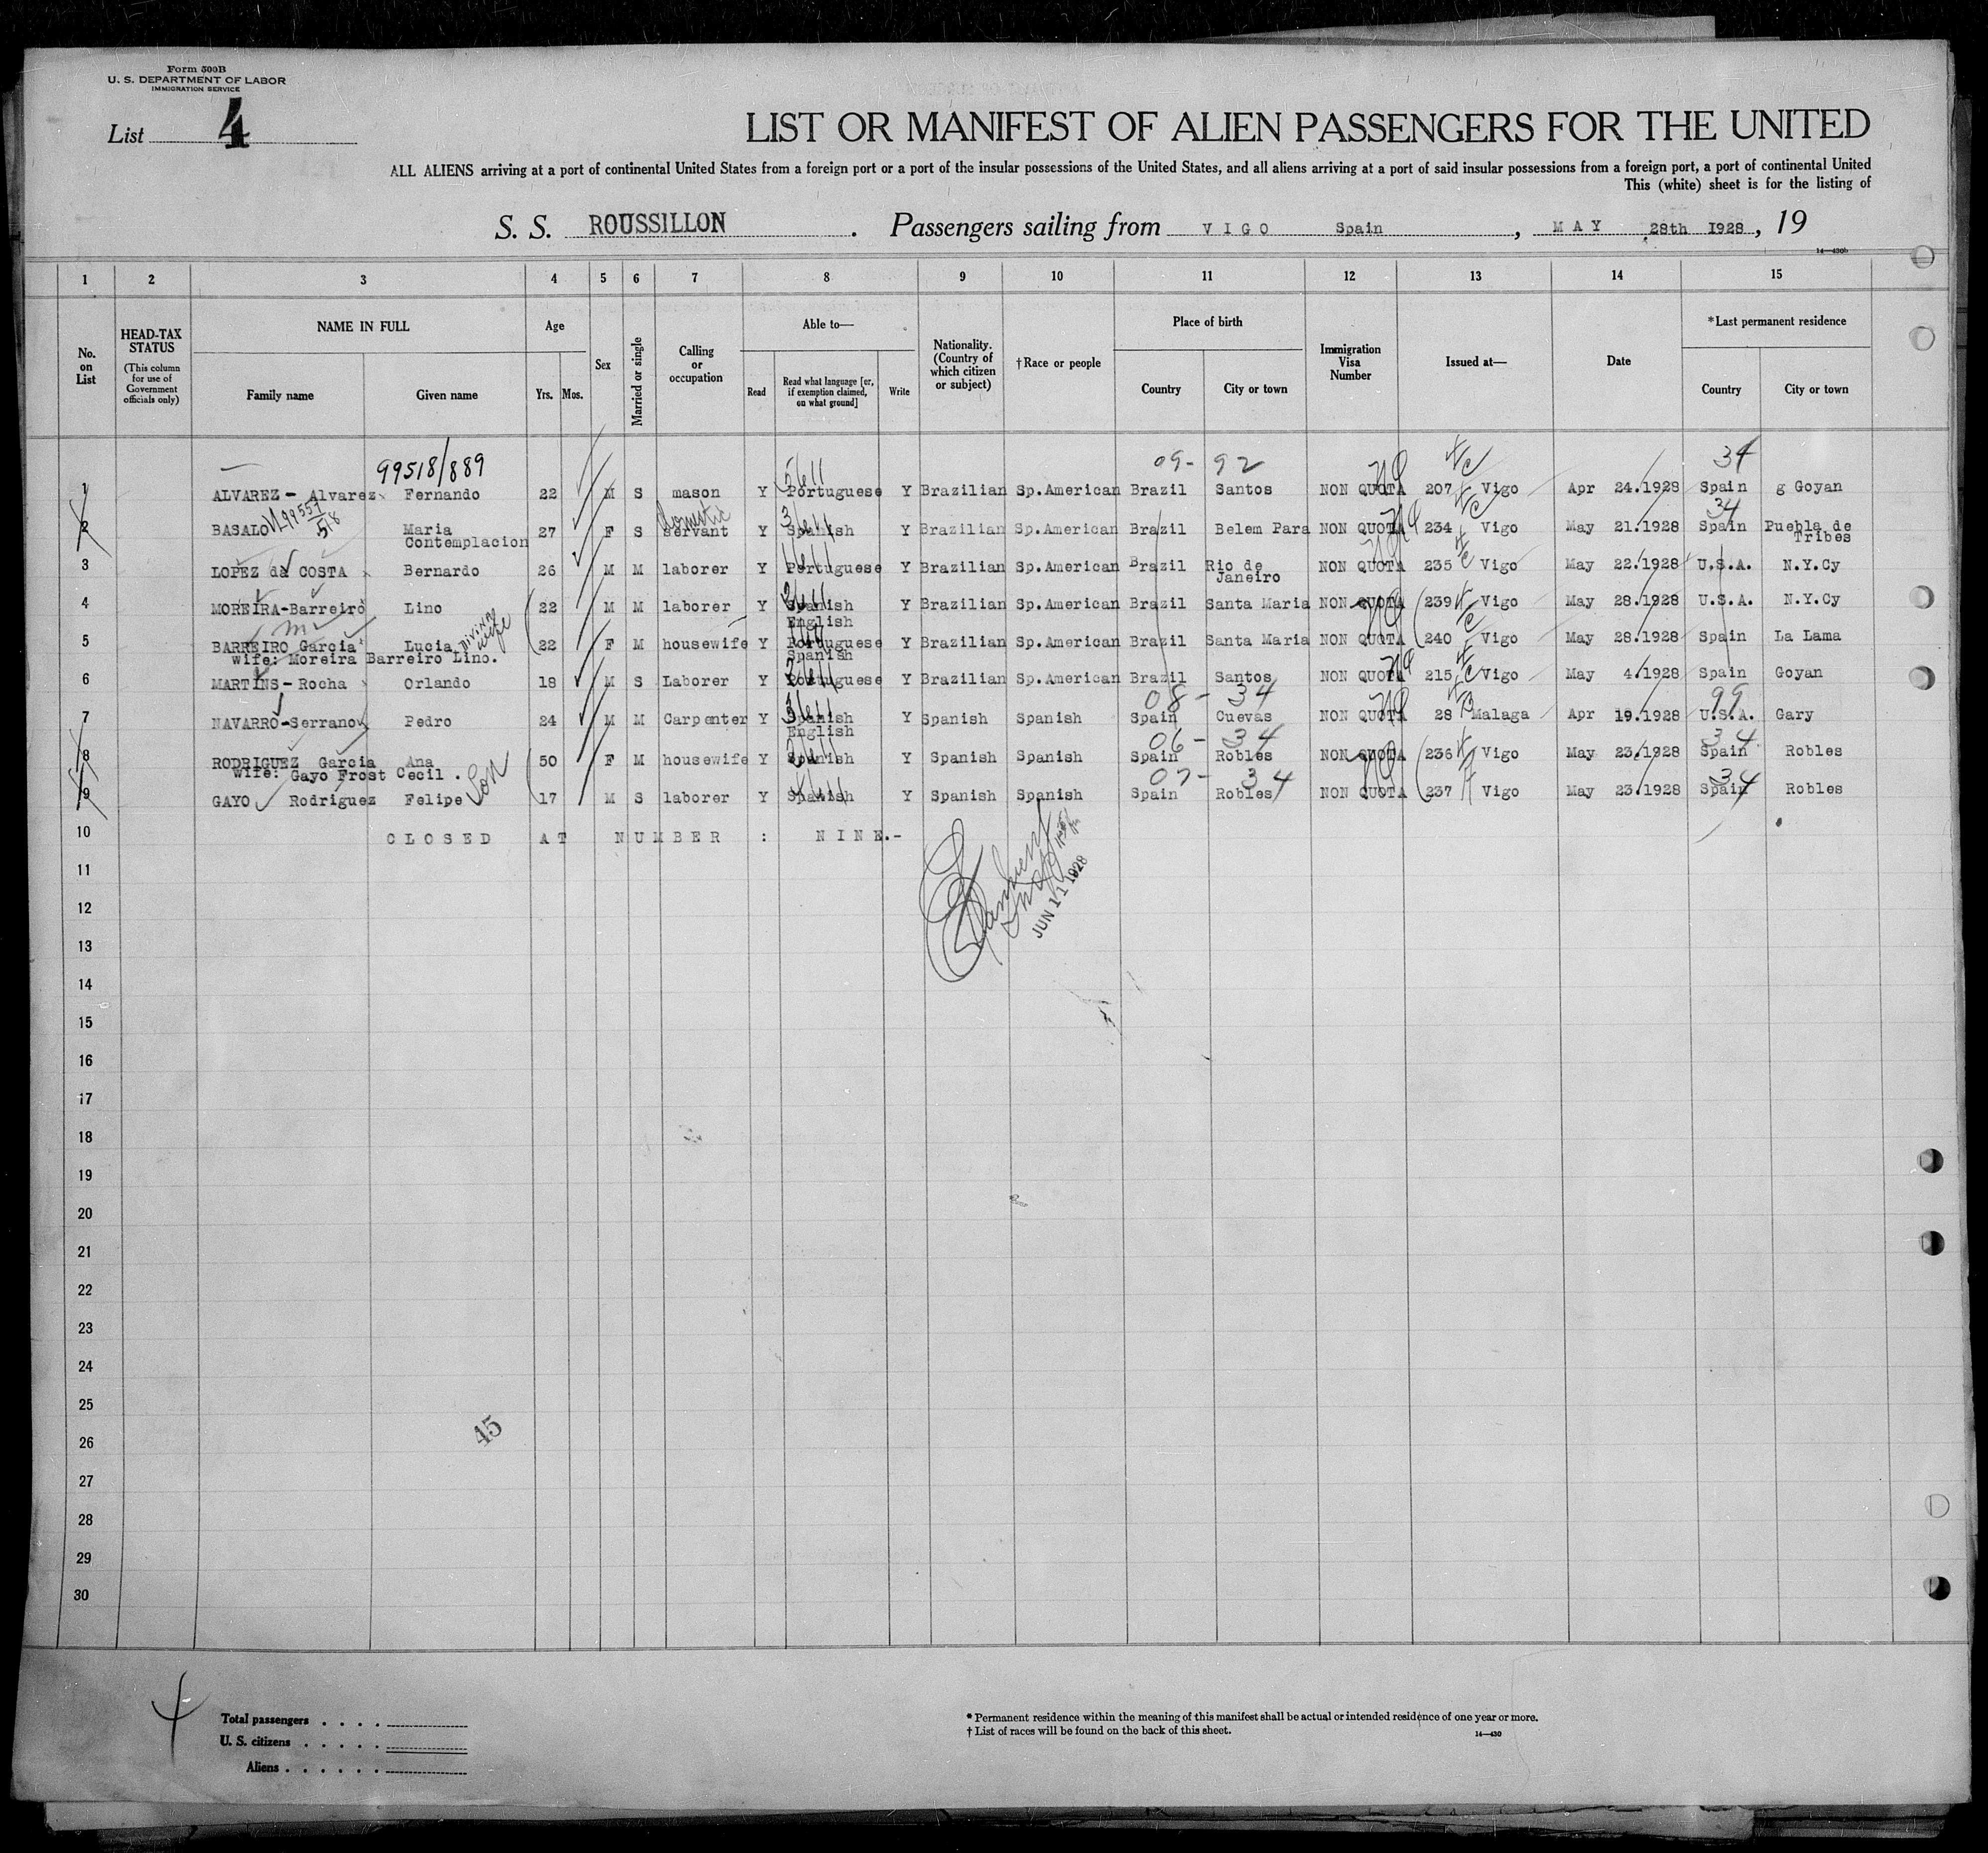 Form 500B
U. S. DEPARTMENT OF LABOR
IMMIGRATION SERVICE
List 4
LIST OR MANIFEST OF ALIEN PASSENGERS FOR THE UNITED
ALL ALIENS arriving at a port of continental United States from a foreign port or a port of the insular possessions of the United States, and all aliens arriving at a port of said insular possessions from a foreign port, a port of continental United
This (white) sheet is for the listing of
S. S. ROUSSILLON . Passengers sailing from VIGO Spain , MAY 28th 1928 , 19
14—430b
1 2 3 4 5 6 7 8 9 10 11 12 13 14 15
No. on List
HEAD-TAX STATUS (This column for use of Government officials only)
NAME IN FULL
Family name Given name
Age
Yrs. Mos.
Sex
Married or single
Calling or occupation
Able to—
Read Read what language [or, if exemption claimed, on what ground] Write
Nationality. (Country of which citizen or subject)
†Race or people
Place of birth
Country City or town
Immigration Visa Number
Issued at—
Date
*Last permanent residence
Country City or town
99518/889 09- 92 34
1 ALVAREZ - Alvarez Fernando 22 M S mason Y Portuguese Y Brazilian Sp.American Brazil Santos NON QUOTA 207 Vigo Apr 24.1928 Spain g Goyan
domestic 34
2 BASALO Maria Contemplacion 27 F S servant Y Spanish Y Brazilian Sp.American Brazil Belem Para NON QUOTA 234 Vigo May 21.1928 Spain Puebla de Tribes
3 LOPEZ da COSTA Bernardo 26 M M laborer Y Portuguese Y Brazilian Sp.American Brazil Rio de Janeiro NON QUOTA 235 Vigo May 22.1928 U.S.A. N.Y.Cy
4 MOREIRA-Barreiro Lino 22 M M laborer Y Spanish English Y Brazilian Sp.American Brazil Santa Maria NON QUOTA 239 Vigo May 28.1928 U.S.A. N.Y.Cy
DIVINA wife
5 BARREIRO Garcia Lucia 22 F M housewife Y Portuguese Spanish Y Brazilian Sp.American Brazil Santa Maria NON QUOTA 240 Vigo May 28.1928 Spain La Lama
wife: Moreira Barreiro Lino.
6 MARTINS-Rocha Orlando 18 M S Laborer Y Portuguese Y Brazilian Sp.American Brazil Santos NON QUOTA 215 Vigo May 4.1928 Spain Goyan
08 - 34 99
7 NAVARRO-Serrano Pedro 24 M M Carpenter Y Spanish English Y Spanish Spanish Spain Cuevas NON QUOTA 28 Malaga Apr 19.1928 U.S.A. Gary
06 - 34 34
8 RODRIGUEZ Garcia Ana 50 F M housewife Y Spanish Y Spanish Spanish Spain Robles NON QUOTA 236 Vigo May 23.1928 Spain Robles
wife: Gayo Frost Cecil . Son
07 - 34 34
9 GAYO Rodriguez Felipe 17 M S laborer Y Spanish Y Spanish Spanish Spain Robles NON QUOTA 237 Vigo May 23.1928 Spain Robles
10 CLOSED AT NUMBER : NINE.-
11
JUN 11 1928
12
13
14
15
16
17
18
19
20
21
22
23
24
25
45
26
27
28
29
30
Total passengers . . . .
U. S. citizens . . . . .
Aliens . . . . . .
* Permanent residence within the meaning of this manifest shall be actual or intended residence of one year or more.
† List of races will be found on the back of this sheet.
14—430